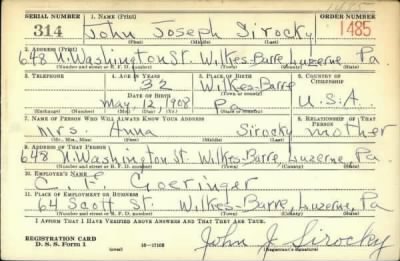 1485
SERIAL NUMBER 1. NAME (Print) ORDER NUMBER
314 John Joseph Sirocky 1485
(First) (Middle) (Last)
2. ADDRESS (Print)
648 N. Washington St. Wilkes-Barre, Luzerne, Pa.
(Number and street or R. F. D. number) (Town) (County) (State)
3. TELEPHONE 4. AGE IN YEARS 5. PLACE OF BIRTH 6. COUNTRY OF CITIZENSHIP
32 Wilkes-Barre
DATE OF BIRTH (Town or county)
May 12, 1908 Pa. U.S.A.
(Exchange) (Number) (Mo.) (Day) (Yr.) (State or country)
7. NAME OF PERSON WHO WILL ALWAYS KNOW YOUR ADDRESS 8. RELATIONSHIP OF THAT PERSON
Mrs. Anna Sirocky mother
(Mr., Mrs., Miss) (First) (Middle) (Last)
9. ADDRESS OF THAT PERSON
648 N. Washington St. Wilkes-Barre, Luzerne, Pa.
(Number and street or R. F. D. number) (Town) (County) (State)
10. EMPLOYER'S NAME
C. F. Goeringer
11. PLACE OF EMPLOYMENT OR BUSINESS
64 Scott St. Wilkes-Barre, Luzerne, Pa.
(Number and street or R. F. D. number) (Town) (County) (State)
I AFFIRM THAT I HAVE VERIFIED ABOVE ANSWERS AND THAT THEY ARE TRUE.
REGISTRATION CARD
D. S. S. Form 1 (over) 16-17105 John J Sirocky
(Registrant's signature)